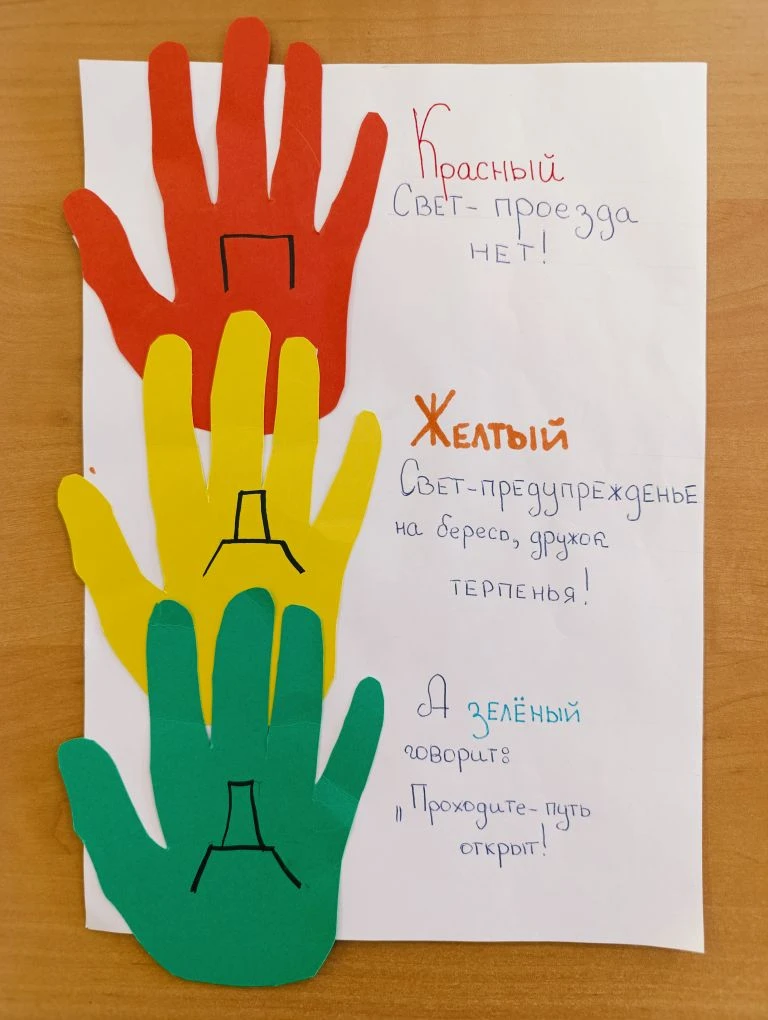 Красный
Свет- проезда
нет!
Желтый
Свет-предупрежденье
на бересо, дружок
терпенья!
А зелёный
говорит:
„Проходите-путь
открыт!